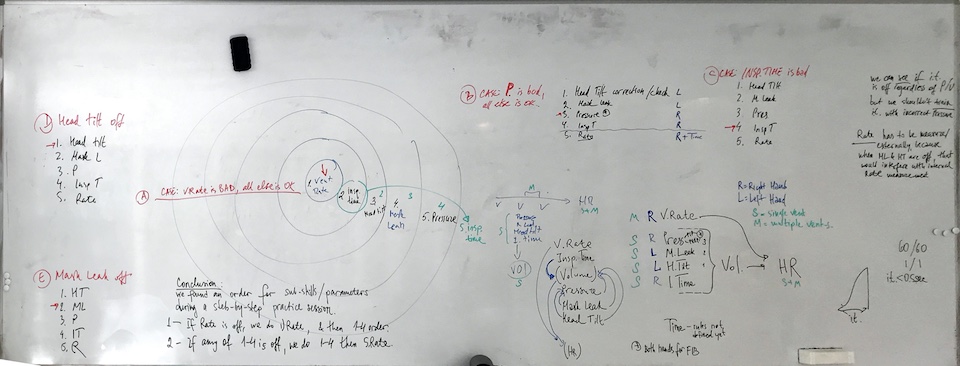 D Head tilt off
1. Head tilt
2. Mask L
3. P
4. Insp T
5. Rate
A CASE: VRate is BAD, all else is OK
1. Vent Rate
2. Insp. time
3. Head tilt
4. Mask Leak
5. Pressure
2
3
4
5. Insp. time
E Mask Leak off
1. HT
2. ML
3. P
4. IT
5. R
Conclusion:
we found an order for sub-skills/parameters
during a step-by-step practice session.
1 – If Rate is off, we do VRate, & then 1-4 order.
2 – If any of 1-4 is off, we do 1-4 then 5. Rate.
B CASE: P. is bad,
all else is OK.
1. Head Tilt correction/check L
2. Mask Leak L
3. Pressure R
4. Insp T R
5. Rate R + Time
C CASE: INSP. TIME is bad
1. Head Tilt
2. M Leak
3. Pres
4. Insp T
5. Rate
we can see if i.t.
is off regardless of P/V
but we shouldn't
it. with incorrect Pressure
Rate has to be measured
externally, because
when ML & HT are off, that
would interfere with internal
Rate measurement.
R=Right Hand
L=Left Hand
S - single vent
M = multiple vents.
M
V V V
HR
S+M
S
Head tilt
I. time
VOL
S
V. Rate
Insp. Time
(Volume)
Pressure
Mask Leak
Head Tilt
(HR)
M R V. Rate
S R Pres
S L M. Leak
S L H. Tilt
S R I Time
Vol.
HR
S+M
Time - rules not
defined yet
Both hands for FiB
60/60
1/1
i.t. < 0.5 sec
i.t.